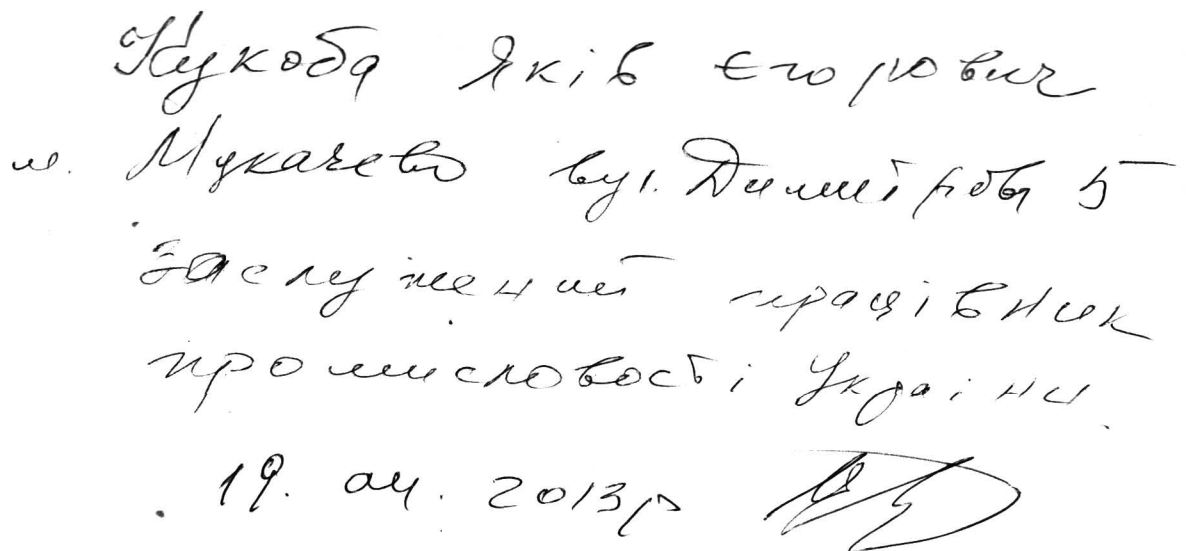 Кукоба Яків Єгорович
м. Мукачево вул. Димитрова 5
заслужений працівник
промисловості України.
19. 04. 2013р